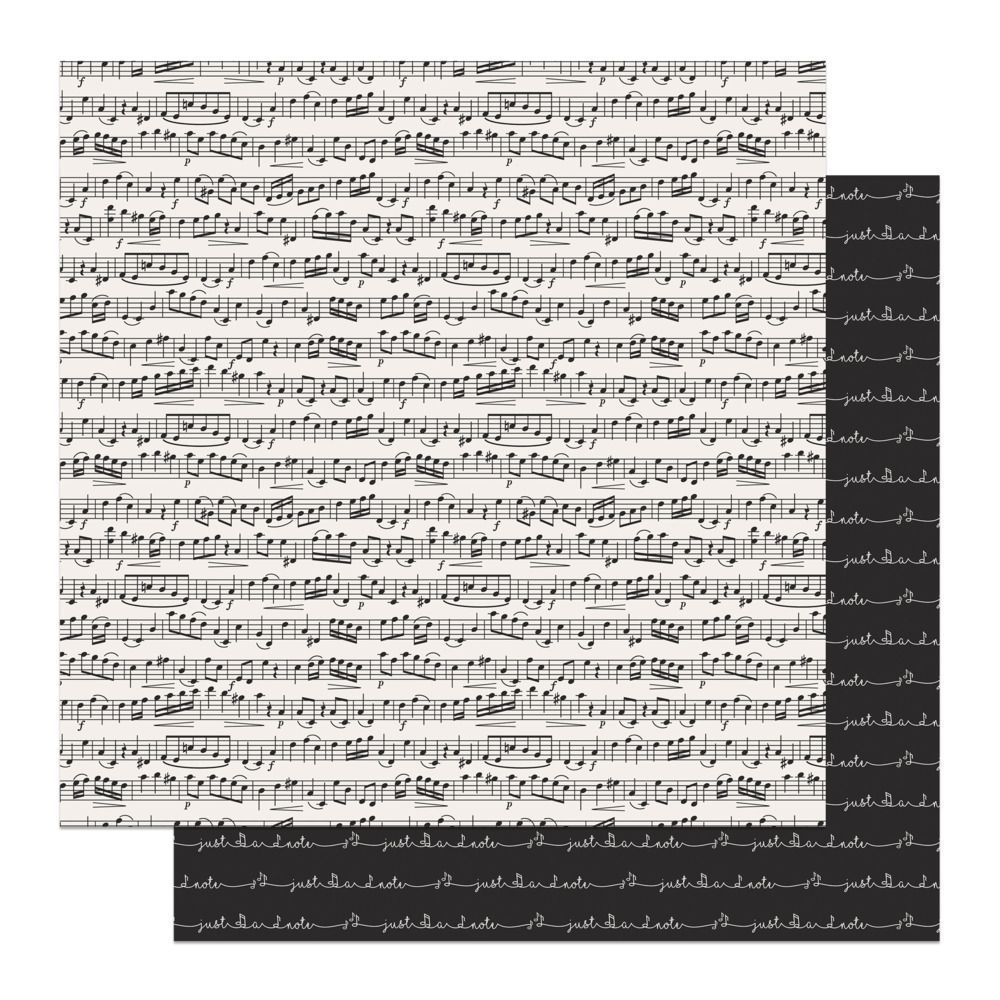 note
just a n
note
just a n
note
just a n
note
just a n
note
just a n
note
just a n
note
just a n
note
just a n
just a note just a note just a note just a note
note just a note just a note just a note just a n
just a note just a note just a note just a note